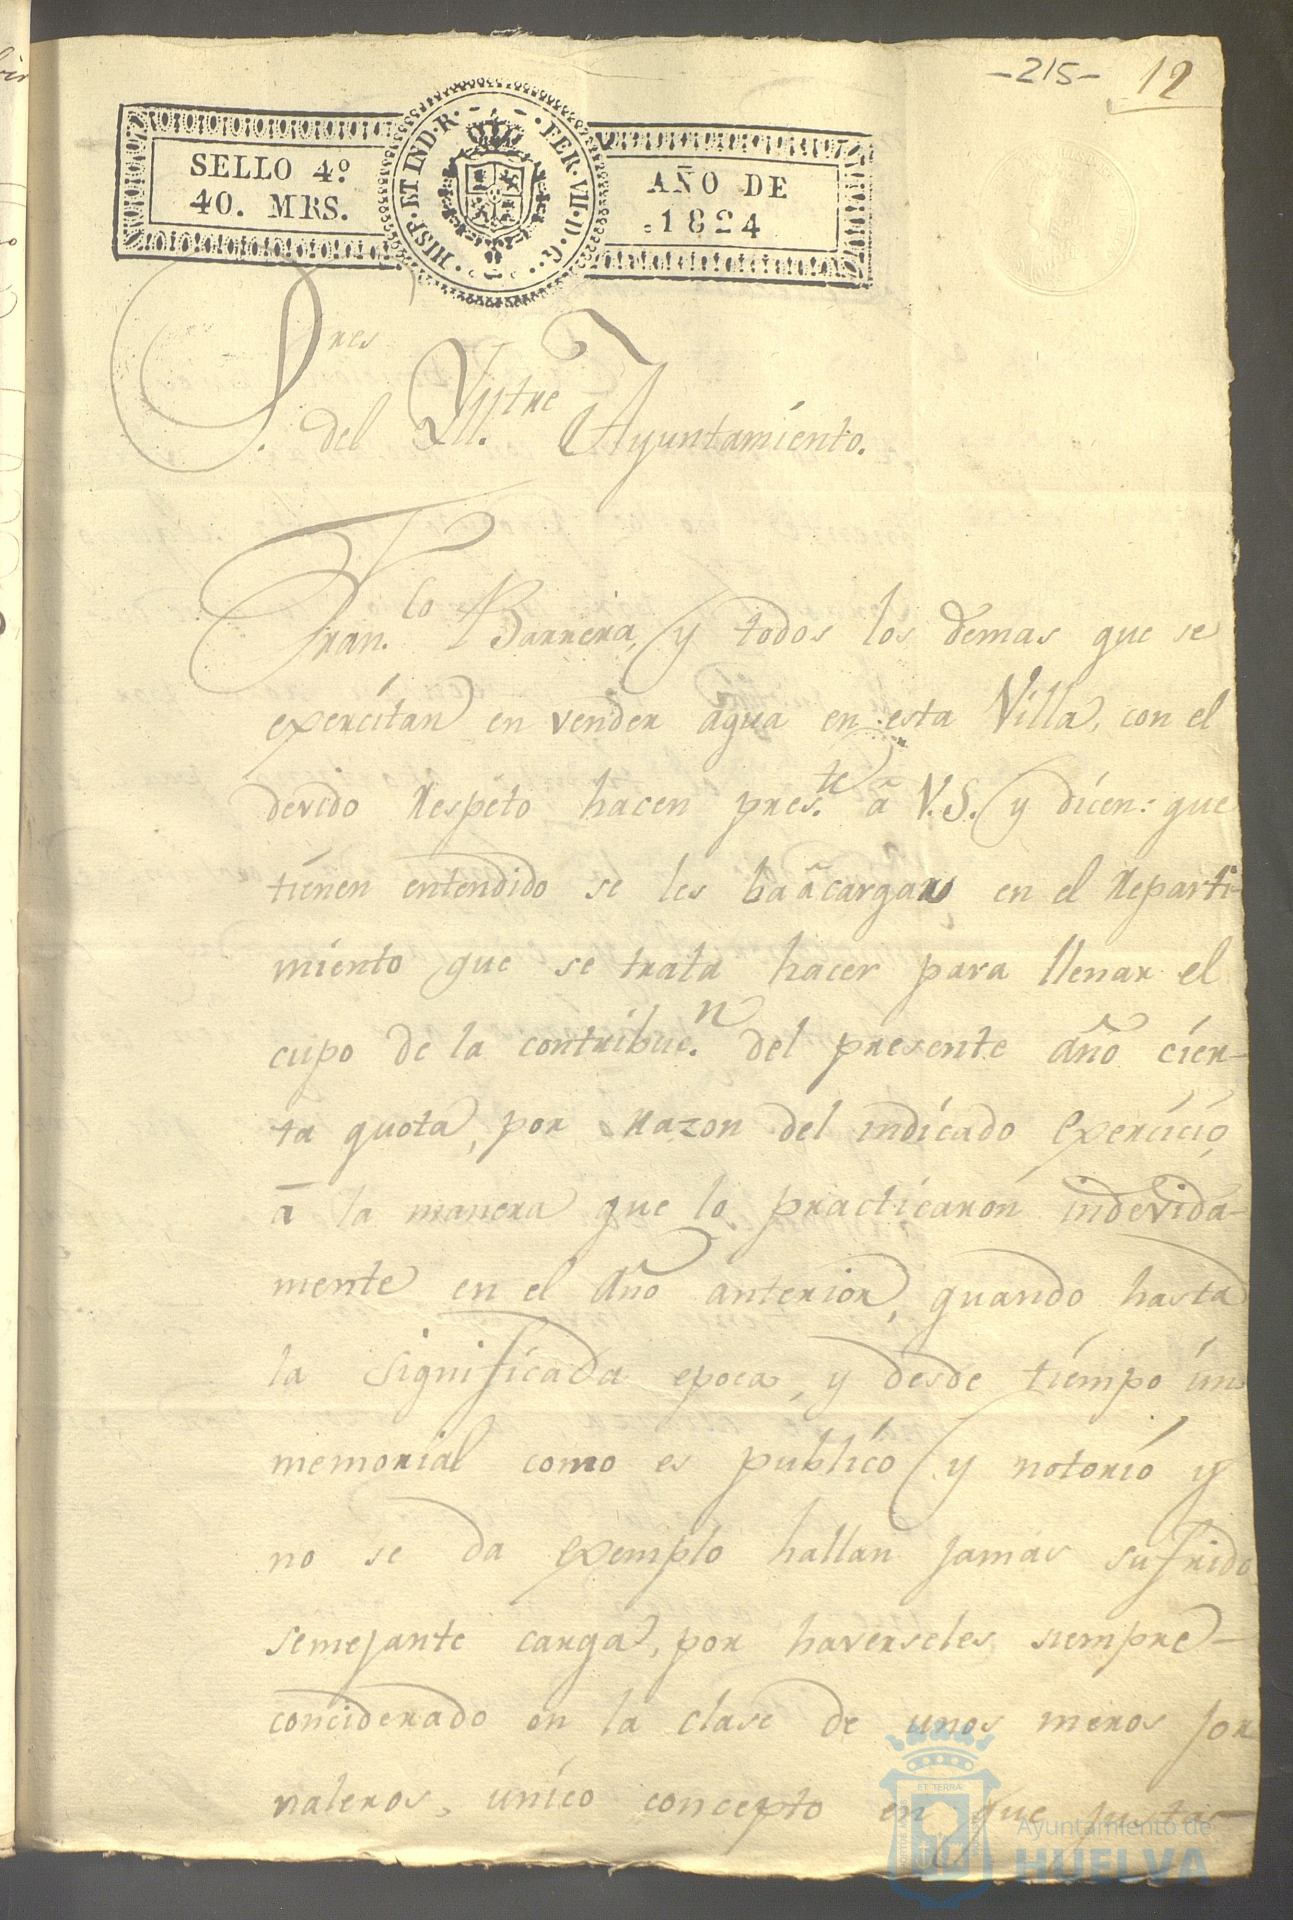 -215- 12
SELLO 4º
40. MRS.
HISP. ET IND. R. FER. VII. D. G.
AÑO DE
1824
Sres
del Yll.tre Ayuntamiento.
Fran.co Barrera, y todos los demas que se
exercitan en vender agua en esta Villa, con el
devido respeto hacen pres.te â V.S. y dicen: que
tienen entendido se les ba âcargar en el reparti-
miento que se trata hacer para llenar el
cupo de la contribuc.n del presente año cier-
ta quota, por razon del indicado exercicio,
â la manera que lo practicaron indevida-
mente en el año anterior, quando hasta
la significada epoca, y desde tiempo ún
memorial como es publico y notorio y
no se da exemplo hallan jamas sufrido
semejante carga, por haverseles siempre-
conciderado en la clase de unos meros jor
naleros, unico concepto en que justa-
ET TERRÆ
Ayuntamiento de
HUELVA